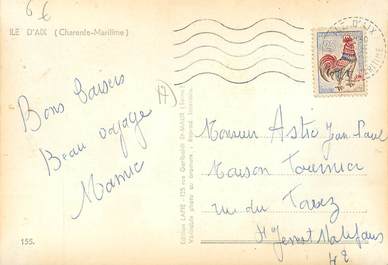 6 €
ILE D'AIX (Charente-Maritime)
Bons baisers
Beau voyage
(17)
Edition LAPIE - 155 rue Garibaldi St-MAUR (Seine)
Véritable photo au bromure - Reprod. Interdite
Monsieur Astic Jean-Paul
Maison
rue du
St Genest Malifaux
155.